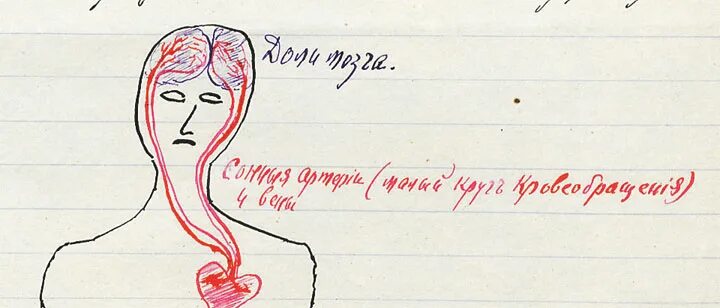 Доли мозга.
Сонныя артеріи (малый кругъ Кровеобращенія)
и вены